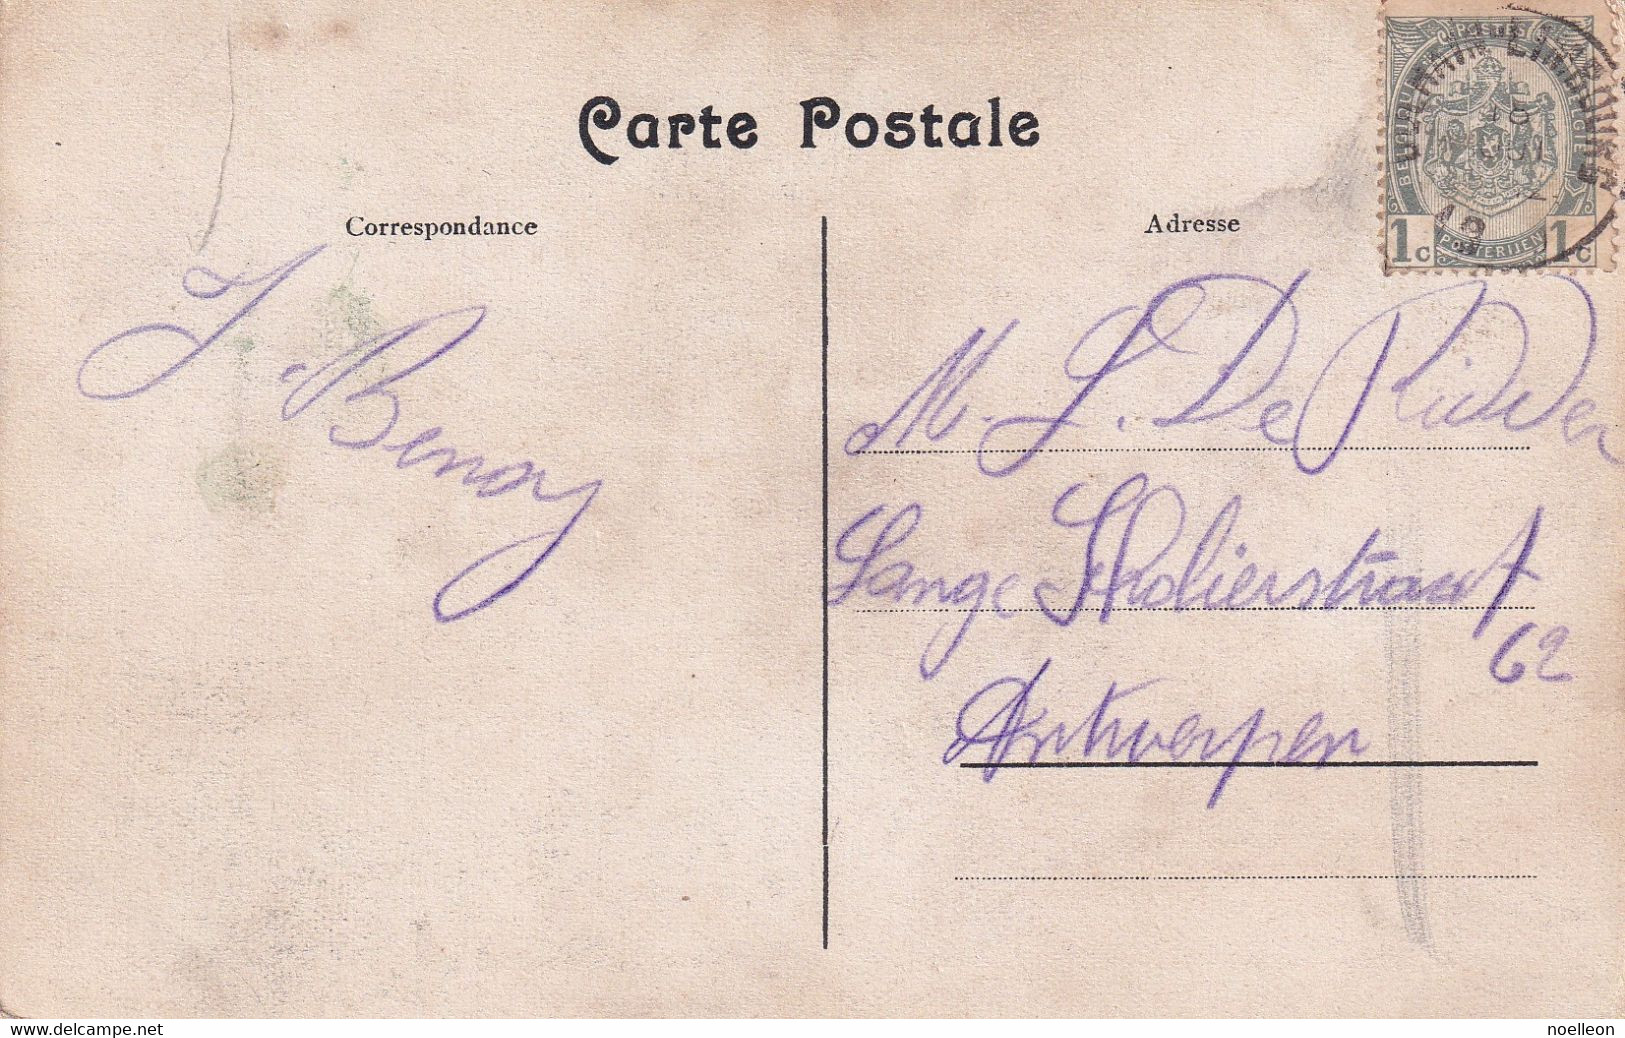 Carte Postale
Correspondance
Adresse
BELGIQUE POSTES BELGIË
1c POSTERIJEN 1c
J. Benoy
M. L. De Ridder
Lange Scholierstraat
62
Antwerpen
www.delcampe.net
noelleon